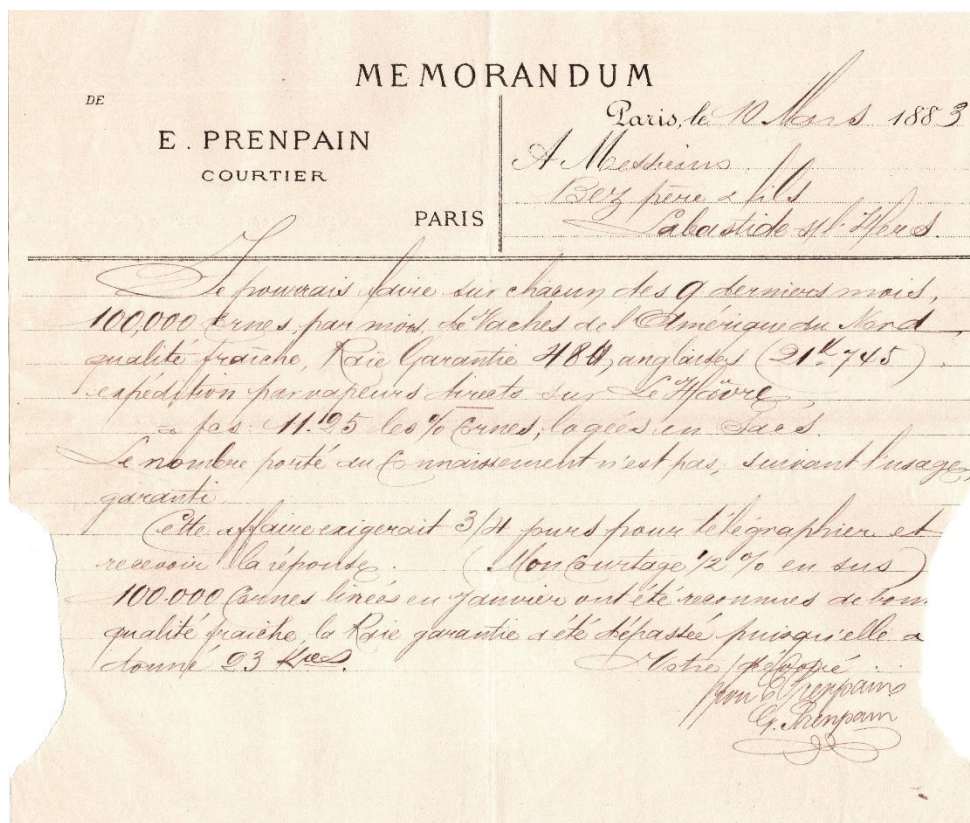 MEMORANDUM
DE
E. PRENPAIN
COURTIER
PARIS
Paris, le 10 Mars 1883
A Messieurs
Bez père & fils
Labastide s/ l'Hers.
Je pourrais faire sur chacun des 9 derniers mois,
100,000 Cornes, par mois, de Vaches de l'Amérique du Nord
qualité fraîche, Raie Garantie 48 anglaises (21k 745)
expédition par vapeurs directs sur Le Hâvre,
à fcs 11.95 les % Cornes, logées en Sacs.
Le nombre porté au Connaissement n'est pas, suivant l'usage,
garanti.
Cette affaire exigerait 3/4 jours pour télégraphier et
recevoir la réponse. (Mon Courtage 1/2 % en sus)
100.000 Cornes livrées en Janvier ont été reconnues de bonne
qualité fraîche, la Raie garantie a été dépassée puisqu'elle a
donné 23 Kos.
Votre dévoué
pour E. Prenpain
G. Prenpain